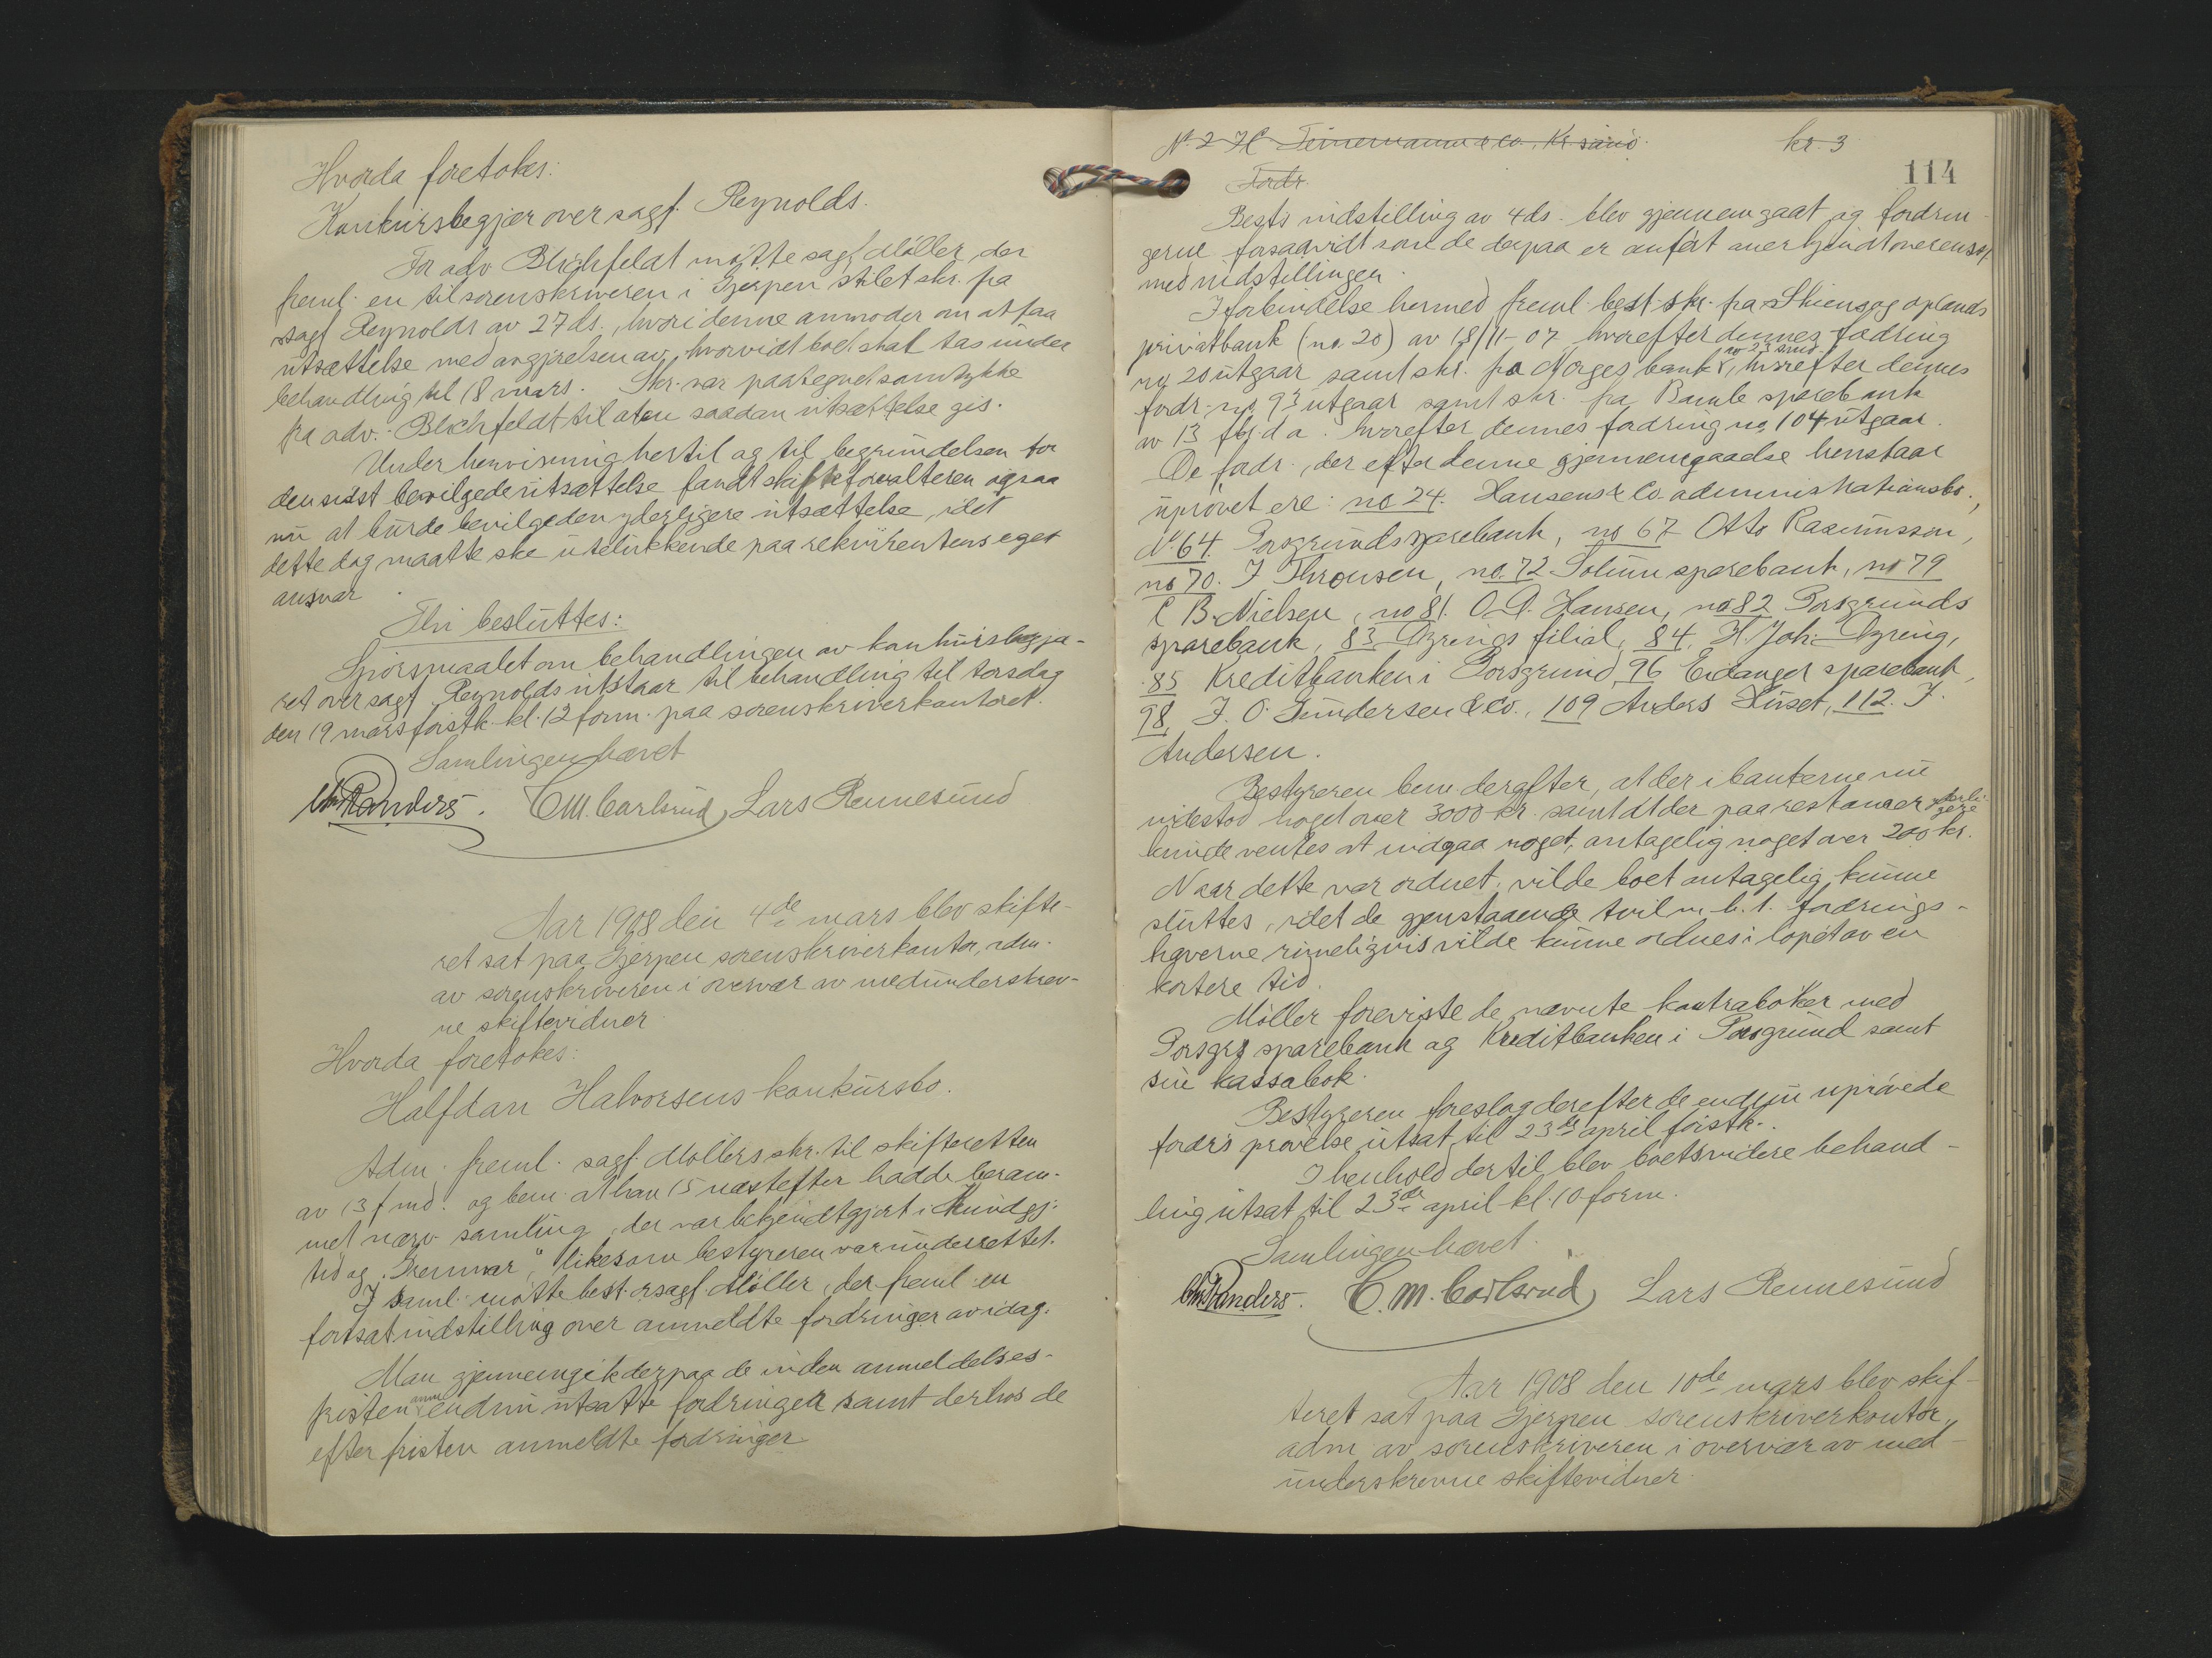 Hvorda foretokes:
Konkursbegjær over sagf. Reynolds.
For adv Blichfeldt møtte sagf Møller der
freml. en til sorenskriveren i Gjerpen stilet skr. fra
sagf Reynolds av 27 ds., hvori denne anmoder om at faa
utsættelse med avgjørelsen av, hvorvidt boet skal tas under
behandling til 18 mars. Skr. var paategnet samtykke
fra adv. Blichfeldt til at en saadan utsættelse gis.
Under henvisning hertil og til begrundelsen for
den sidst bevilgede utsættelse fandt skifteforvalteren ogsaa
nu at burde bevilge den yderligere utsættelse, idet
dette dog maatte ske utelukkende paa rekvirentens eget
ansvar.
Thi besluttes:
Spørsmaalet om behandlingen av konkursbegjæ-
ret over sagf. Reynolds utstaar til behandling til torsdag
den 19 mars førstk. kl. 12 form. paa sorenskriverkontoret.
Samlingen hævet
Chr Randers. C M. Carlsrud, Lars Rennesund
Aar 1908 den 4de mars blev skifte-
ret sat paa Gjerpen sorenskriverkontor, adm.
av sorenskriveren i overvær av medunderskrev-
ne skiftevidner
Hvorda foretokes:
Halfdan Halvorsens konkursbo.
Adm. freml. sagf. Møllers skr. til skifteretten
av 13 f md. og bem. at han 15 næstefter hadde beram-
met nærv. samling, der var bekjendtgjort i Kundgj.
tid og "Grenmar", likesom bestyreren var underrettet.
I saml. møtte best. o sagf. Møller, der freml. en
fortsat indstilling over anmeldte fordringer av idag.
Man gjennemgik derpaa de inden anmeldelses-
fristen anm endnu utsatte fordringer samt derhos de
efter fristen anmeldte fordringer
No. 2 Kr.sand. kr. 3
Fordr.
114
Bests indstilling av 4 ds. blev gjennemgaat og fordrin-
gerne forsaavidt som de derpaa er anført anerkjendt overenss.
med indstillingen.
I forbindelse hermed freml. best. skr. fra Skiens og oplands
privatbank (no. 20) av 18/11-07 hvorefter dennes fordring
no 20 utgaar samt skr. fra Norges bank av 23 smd., hvorefter dennes
fordr. no. 93 utgaar samt skr. fra Bamle sparebank
av 13 fbr. d a. hvorefter dennes fordring no 104 utgaar.
De fordr., der efter denne gjennemgaaelse henstaar
uprøvet ere: no 24. Hansens & Co. administrationsbo.,
No. 64. Porsgrunds sparebank, no 67 Otto Rasmussen,
no 70. J Thronsen, no. 72 Solum sparebank, no 79
C B. Nielsen, no 81. O. A. Hansen, no 82 Porsgrunds
sparebank, 83 Dyrings filial, 84. H Joh. Dyring,
85 Kreditbanken i Porsgrund, 96 Eidanger sparebank,
98, J. O. Gundersen & Co., 109 Anders Huset, 112. J.
Andersen.
Bestyreren bem derefter, at der i bankerne nu
indestod noget over 3000 kr. samt at der paa restancer yderligere
kunde ventes at indgaa noget, antagelig noget over 200 kr.
Naar dette var ordnet, vilde boet antagelig kunne
sluttes, idet de gjenstaaende tvil m. h. t. fordrings-
haverne rimeligvis vilde kunne ordnes i løpet av en
kortere tid.
Møller foreviste de nævnte kontrabøker med
Porsgrs sparebank og Kreditbanken i Porsgrund samt
sin kassabok.
Bestyreren foreslog derefter de endnu uprøvede
fordr's prøvelse utsat til 23de april førstk.
I henhold dertil blev boets videre behand-
ling utsat til 23de april kl. 10 form.
Samlingen hævet.
Chr Randers. C. M. Carlsrud, Lars Rennesund
Aar 1908 den 10de mars blev skif-
teret sat paa Gjerpen sorenskriverkontor,
adm av sorenskriveren i overvær av med-
underskrevne skiftevidner.